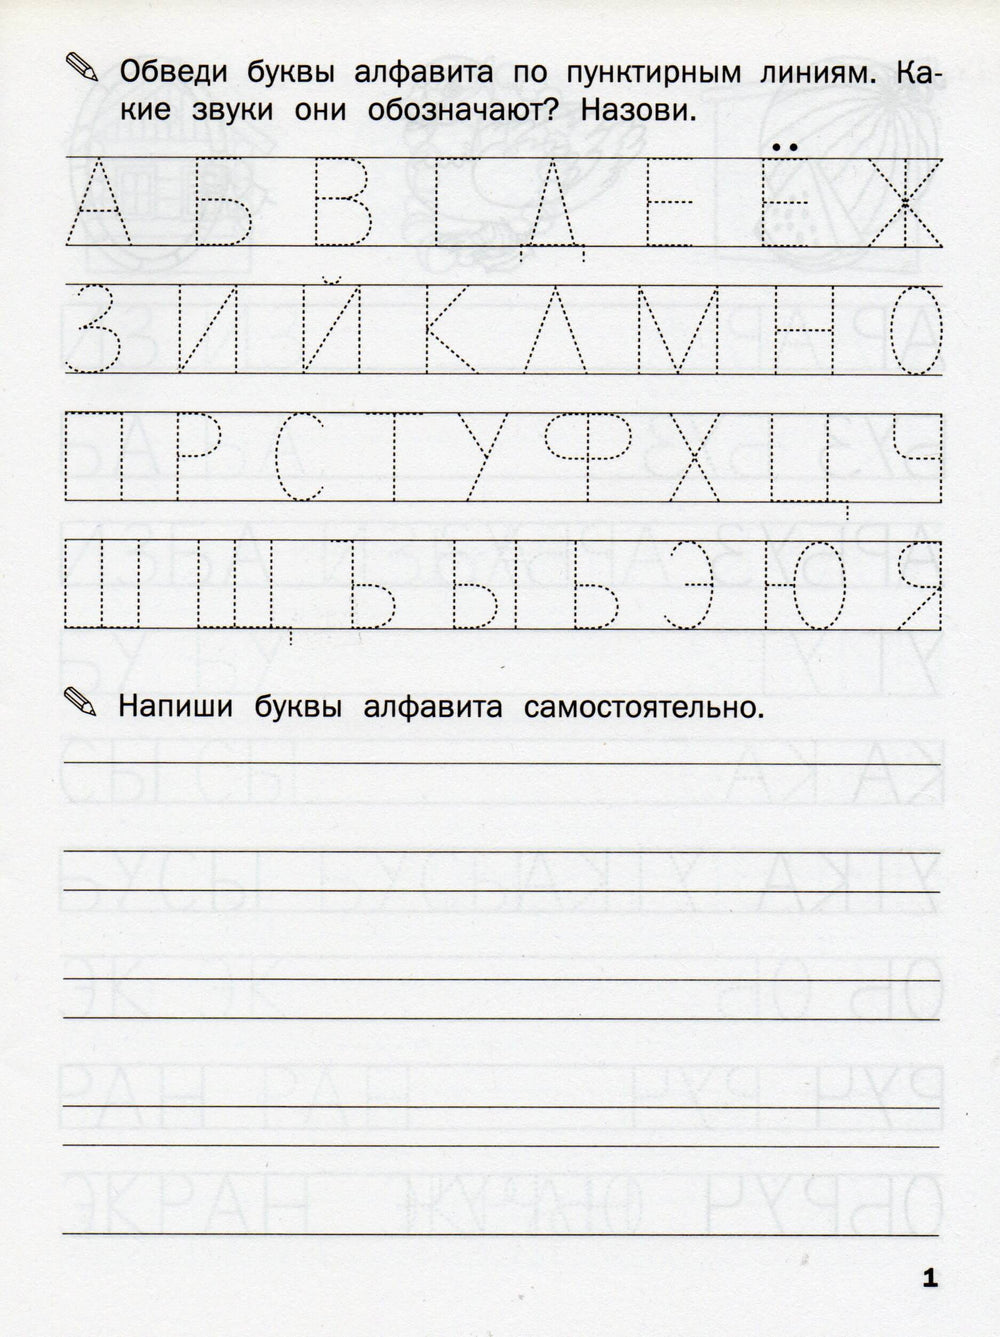 Обведи буквы алфавита по пунктирным линиям. Ка-
кие звуки они обозначают? Назови.
А Б В Г Д Е Ё Ж
З И Й К Л М Н О
П Р С Т У Ф Х Ц Ч
Ш Щ Ъ Ы Ь Э Ю Я
Напиши буквы алфавита самостоятельно.
1